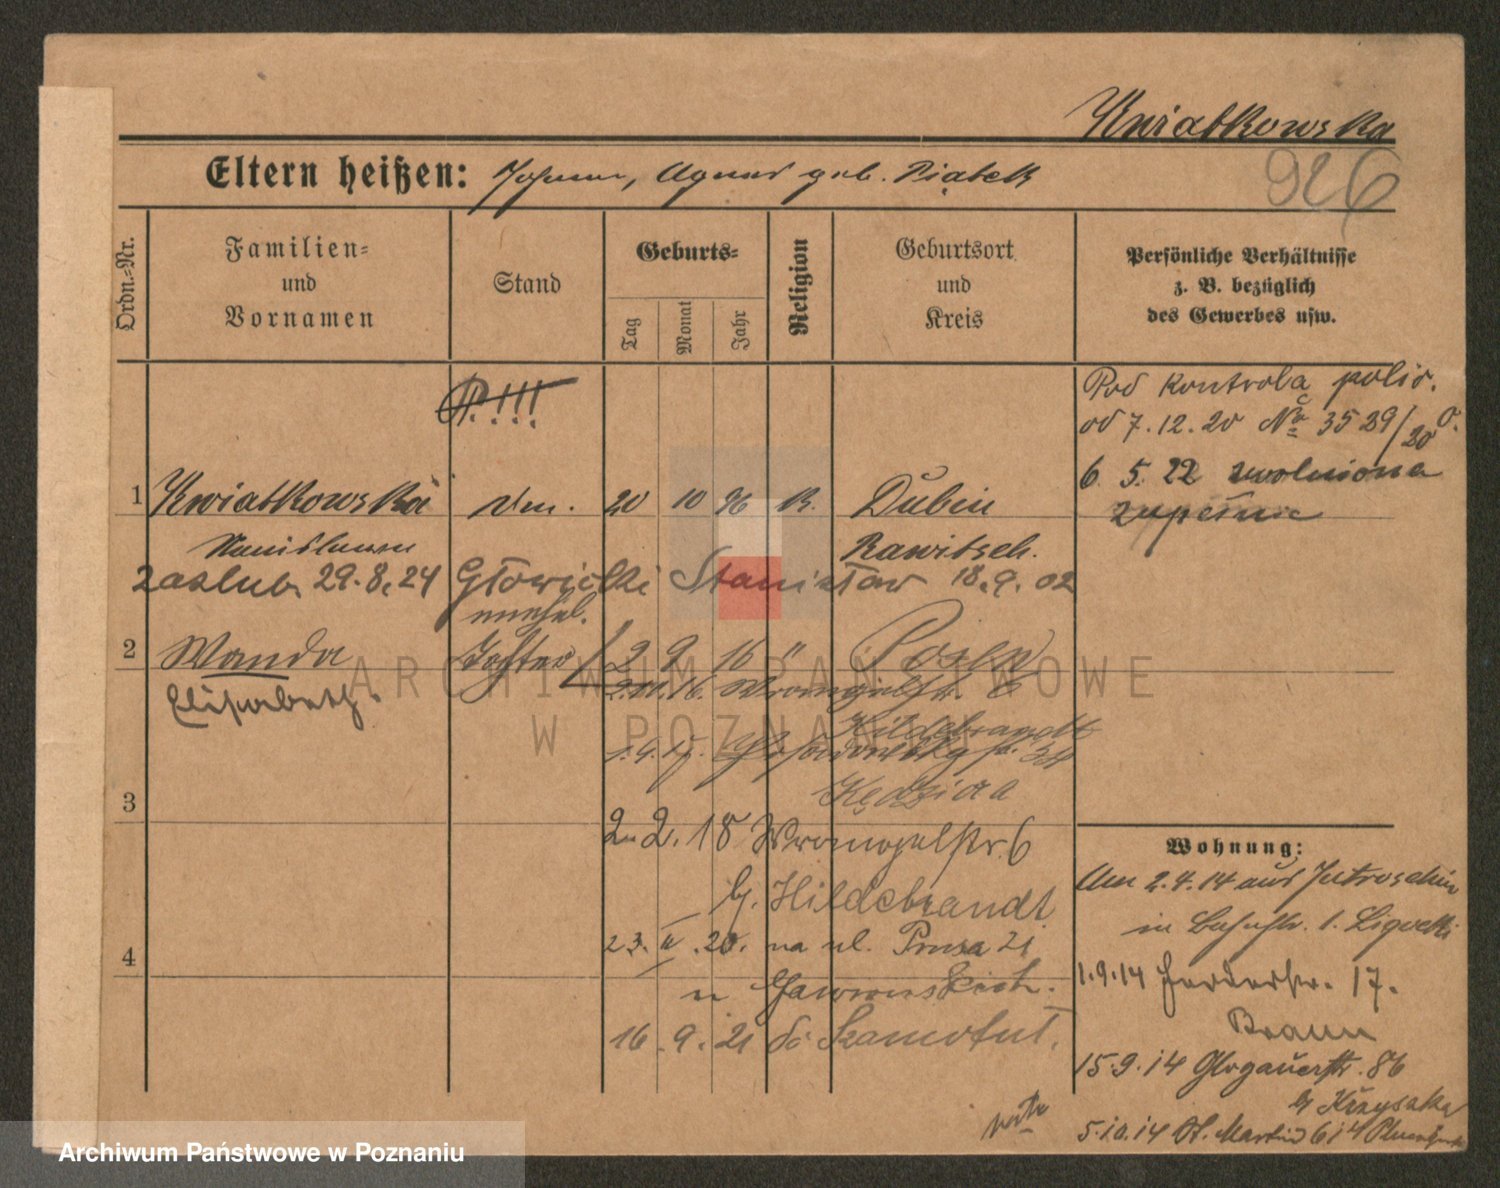 Kwiatkowska
926
Eltern heißen: Johann, Agnes geb. Piątek
Ordn.-Nr.
Familien-
und
Vornamen
Stand
Geburts-
Tag
Monat
Jahr
Religion
Geburtsort
und
Kreis
Persönliche Verhältnisse
z. B. bezüglich
des Gewerbes usw.
P.!!!
Pod kontrolą polic.
od 7.12.20 No 3529/20
6 5. 22 zwolniona
zupełnie
1 Kwiatkowska 20 10 96 k. Dubin
Stanislawa Rawitsch.
zaślub. 29.8.24 Stanisław 18.9.02
unehel.
2 Wanda Tochter 2 9 16 " Posen
Elisabeth.
Wrangelstr. 6
Hildebrandt
1.4.17.
3
2. 2. 18 Wrangelstr. 6
b. Hildebrandt
23. II. 20. na ul. Prusa 21
4
u
16.9.21 do Szamotuł.
Wohnung:
Am 2.4.14 aus Jutroschin
in
1.9.14 Herderstr. 17.
Braun
15.9.14 Glogauerstr. 86
b Krzyszka
5.10.14 St. Martin 61
ARCHIWUM PAŃSTWOWE
W POZNANIU
Archiwum Państwowe w Poznaniu